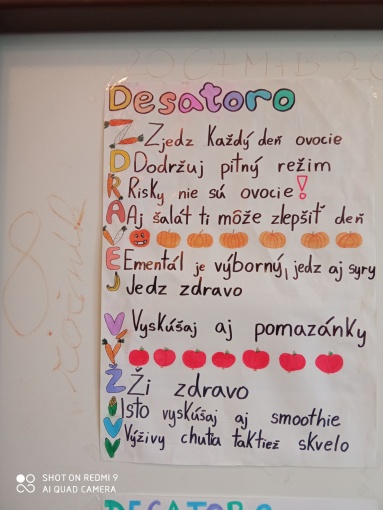 Desatoro
Z Zjedz Každý deň ovocie
D Dodržuj pitný režim
R Risky nie sú ovocie!
A Aj šalát ti môže zlepšiť deň
V
E Ementál je výborný, jedz aj syry
J Jedz zdravo
V Vyskúšaj aj pomazánky
Ý
Ž Ži zdravo
I Isto vyskúšaj aj smoothie
V Výživy chutia taktiež skvelo
ročník
SHOT ON REDMI 9
AI QUAD CAMERA
DESATORO